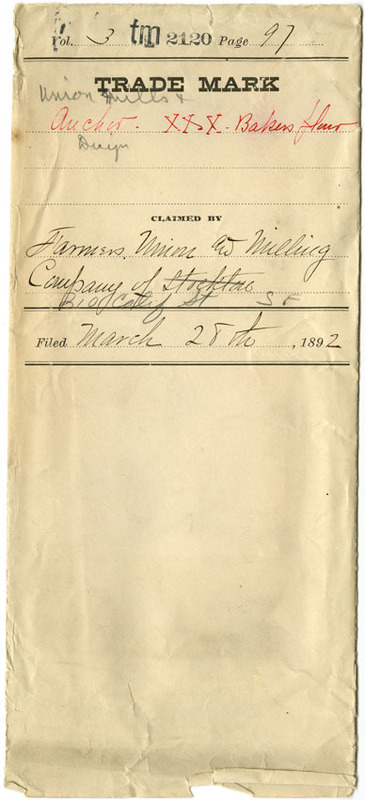 Vol. 3 tm 2120 Page 97
TRADE MARK
Union Mills &
Anchor. XXX. Bakers flour
Design
CLAIMED BY
Farmers Union & Milling
Company of Stockton
St
Filed March 28th, 1892